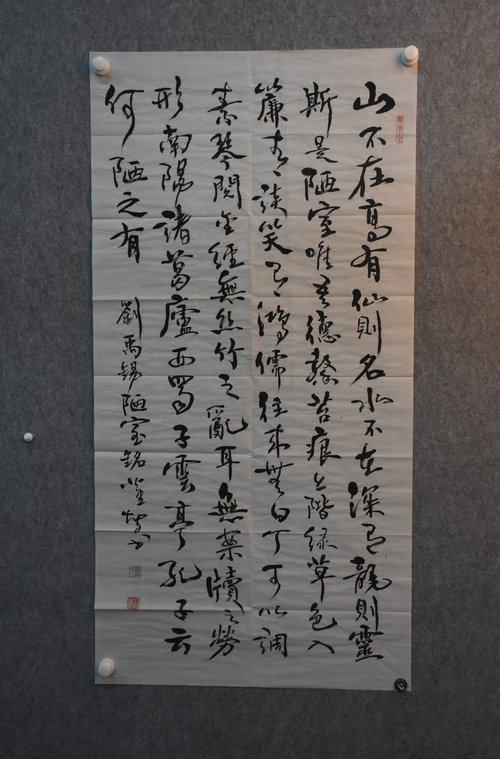 山不在高有仙則名水不在深有龍則靈
斯是陋室唯吾德馨苔痕上階緑草色入
簾青々談笑有鴻儒往來無白丁可以調
素琴閱金經無丝竹之亂耳無案牘之勞
形南陽諸葛廬西蜀子雲亭孔子云
何陋之有
劉禹錫陋室銘